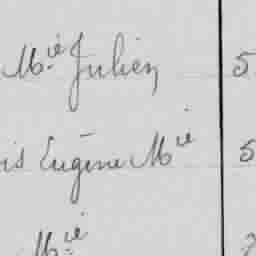 Mie Julien 5
is Eugène Mie 5
Mie